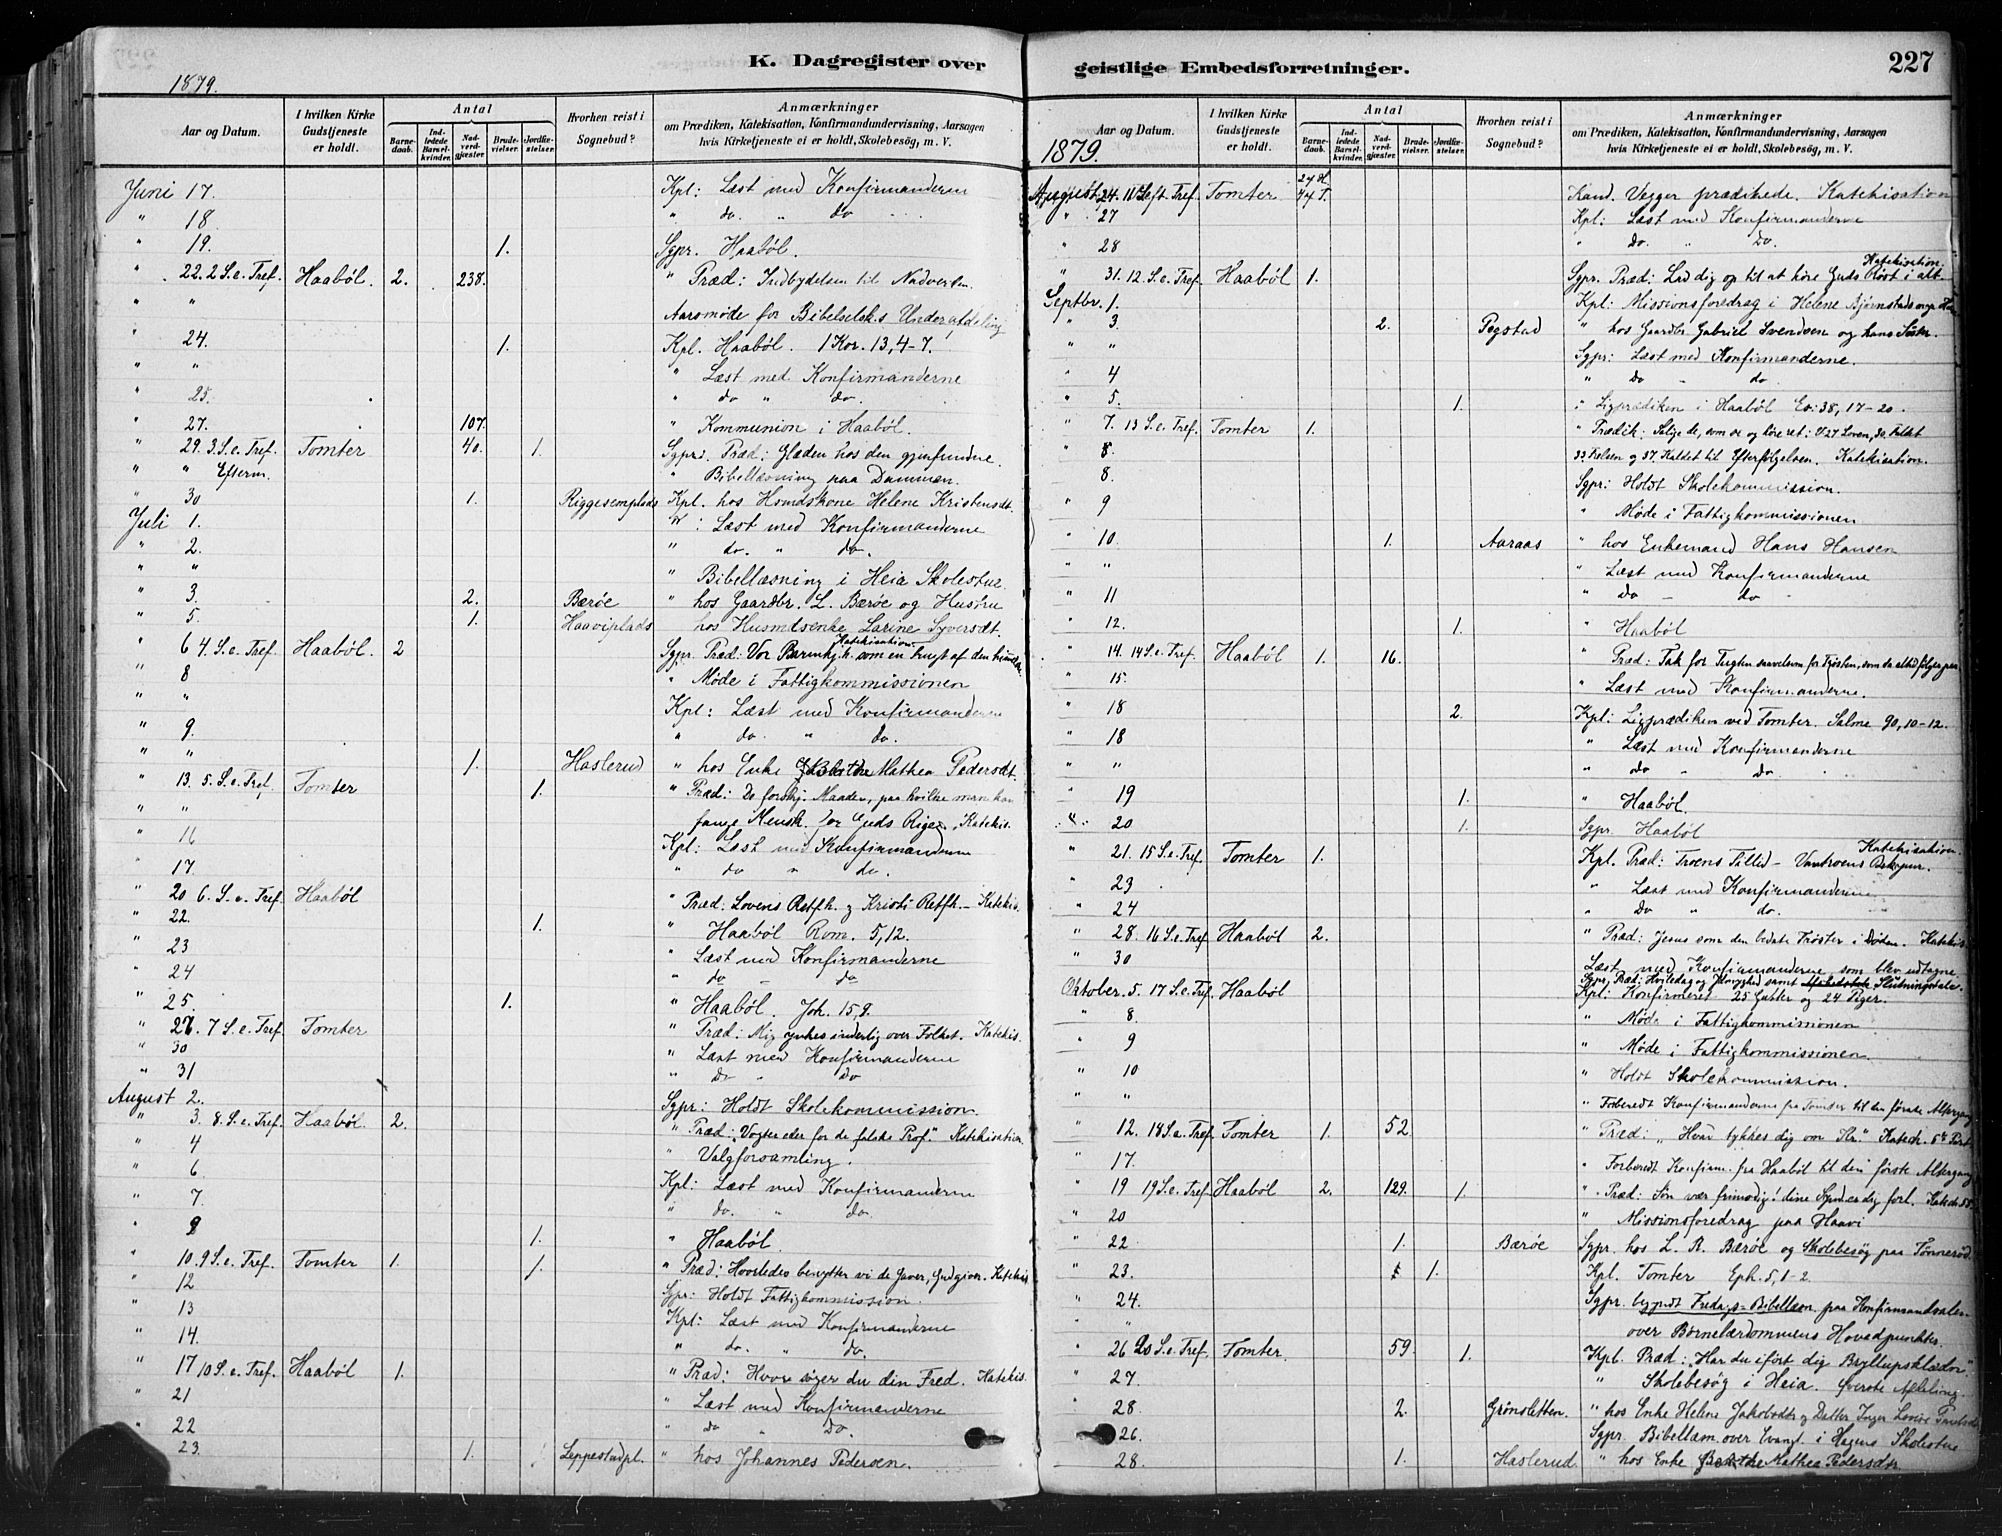 K. Dagregister over
1879.
Aar og Datum.
I hvilken Kirke Gudstjeneste er holdt.
Antal
Barnedaab.
Indledede Barselkvinder.
Nadverdgjæster.
Brudevielser.
Jordfæstelser.
Hvorhen reist i Sognebud?
Anmærkninger
om Prædiken, Katekisation, Konfirmandundervisning, Aarsagen
hvis Kirketjeneste ei er holdt, Skolebesøg, m. V.
Juni 17. Kpl: Læst med Konfirmanderne
" 18 " do. " do
" 19. 1. Sgpr. Haabøl.
" 22. 2 S. e. Tref. Haabøl. 2. 238. " Præd: Indbydelsen til Nadveren.
" " Aarsmøde for Bibelselsk.s Underafdeling
" 24. 1. Kpl. Haabøl. 1 Kor. 13, 4-7.
" " " Læst med Konfirmanderne
" 25. " do " do.
" 27. 107. " Kommunion i Haabøl
" 29. 3. S. e. Tref. Tomter 40. 1. Sgpr. Præd: Glæden hos den gjenfundne.
" " Efterm. " Bibellæsning paa Dammen.
" 30 1. Riggesemplads Kpl. hos Husmdskone Helene Kristensdt.
Juli 1. " : Læst med Konfirmanderne
" 2. " do. " do.
" " " Bibellæsning i Heia Skolestue
" 3. 2. Bærøe " hos Gaardbr. L. Bærøe og Hustru
" 5. 1. Haaviplads hos Husmdsenke Larine Syversdt.
" 6 4. S. e. Tref. Haabøl. 2 Sgpr. Præd: Vor Barmhj.h. som en Frugt af den himmelske Katekisation
" 8 " Møde i Fattigkommissionen
" " Kpl: Læst med Konfirmanderne
" 9. " do. " do.
" " 1. Haslerud " hos Enke Mathea Pedersdt.
" 13. 5. S. e. Tref. Tomter 1. " Præd: De forskj. Maader, paa hvilke man kan
" " fange Mensk. for Guds Rige. Katekis.
16 Kpl: Læst med Konfirmanderne
" 17 " do " do.
" 20 6. S. e. Tref. Haabøl " Præd: Lovens Retfh. og Kristi Retfh. - Katekis.
" 22. 1. " Haabøl Rom. 5, 12.
" 23 " Læst med Konfirmanderne
" 24 " do - do
" 25. 1. " Haabøl. Joh. 15, 9.
" 27. 7 S. e. Tref. Tomter " Præd: Mig ynkes inderlig over Folket. Katekis.
" 30 " Læst med Konfirmanderne
" 31 " Do " Do
August 2. Sgpr: Holdt Skolekommission
" 3. 8. S. e. Tref. Haabøl. 2. " Præd: "Vogter eder for de falske Prof." Katekisation
" 4 " Valgforsamling.
" 6 Kpl: Læst med Konfirmanderne
" 7 " do. " do.
" 9 1. " Haabøl.
" 10. 9 S. e. Tref. Tomter 1. 1. " Præd: Hvorledes benytter vi de Gaver, Gud giver. Katekis
" 12 Sgpr: Holdt Fattigkommission.
" 13 Kpl: Læst med Konfirmanderne
" 14. " do. " do.
" 17 10 S. e. Tref. Haabøl 1. " Præd: Hvor søger du din Fred. Katekis.
" 21 " Læst med Konfirmanderne
" 22 " do " Do.
" 23. 1. Leppestadpl. " hos Johannes Pedersen.
geistlige Embedsforretninger.
227
1879.
Aar og Datum.
I hvilken Kirke Gudstjeneste er holdt.
Antal
Barnedaab.
Indledede Barselkvinder.
Nadverdgjæster.
Brudevielser.
Jordfæstelser.
Hvorhen reist i Sognebud?
Anmærkninger
om Prædiken, Katekisation, Konfirmandundervisning, Aarsagen
hvis Kirketjeneste ei er holdt, Skolebesøg, m. V.
August 24. 11 S. eft. Tref. Tomter Kand. Vegger prædikede. Katekisation
" 27 Kpl: Læst med Konfirmanderne
" 28 " Do. " Do.
" 31. 12. S. e. Tref. Haabøl 1. Sgpr. Præd: Lad dig op til at høre Guds Røst i alt. Katekisation.
Septbr. 1. Kpl: Missionsforedrag i Helene Bjørnstads
" 3. 2. Pegstad " hos Gaardbr. Gabriel Svendsen og hans Søster.
" " Sgpr: Læst med Konfirmanderne.
" 4 " Do " do
" 5. 1. " Ligprædiken i Haabøl Es. 38, 17-20.
" 7. 13 S. e. Tref. Tomter 1. " Prædik: Salige de, som se og høre ret: V 27 Loven, 30 Faldet
" 8. 33 Frelsen og 37 Kaldet til Efterfølgelsen. Katekisation.
" 8. Sgpr: Holdt Skolekommission.
" 9 " Møde i Fattigkommissionen
" 10. 1. Aaraas " hos Enkemand Hans Hansen
" " " Læst med Konfirmanderne
" 11 " Do - do
" 12. 1. " Haabøl
" 14. 14 S. e. Tref. Haabøl 1. 16. " Præd: Tak for Tugten saavelsom for Trøsten, som da altid følger paa
" 15. " Læst med Konfirmanderne.
" 18 2. Kpl: Ligprædiken ved Tomter. Salme 90, 10-12.
" 18 " Læst med Konfirmanderne
" " " do " do.
" 19 1. " Haabøl.
" 20 1. Sgpr. Haabøl
" 21. 15 S. e. Tref. Tomter 1. Kpl. Præd: Troens Tillid - Vantroens Bekymr. Katekisation.
" 23 " Læst med Konfirmanderne
" 24 " Do " do.
" 28. 16 S. e. Tref. Haabøl 2. " Præd: Jesus som den bedste Trøster i Døden. Katekis.
" 30 Læst med Konfirmanderne som blev udtagne.
Oktober. 5. 17 S. e. Tref. Haabøl Sgpr. Præd: Hviledag og Ydmyghed samt Slutningstale.
Kpl: Konfirmeret 25 Gutter og 24 Piger.
" 8. " Møde i Fattigkommissionen
" 9 " Møde i Fattigkommissionen.
" 10 " Holdt Skolekommission.
" " " Forberedt Konfirmanderne fra Tomter til den første Altergang
" 12. 18 S. e. Tref. Tomter 1. 52. " Præd: "Hvad tykkes dig om Kr." Katech. 5te Part
" 17. " Forberedt Konfirm. fra Haabøl til den første Altergang
" 19 19 S. e. Tref. Haabøl 2. 129. 1. " Præd: Søn vær frimodig! dine Synder er dig forl.
" 20 " Missionsforedrag paa Haavi
" 22 1. Bærøe Sgpr. hos L. R. Bærøe og Skolebesøg paa Tønnerød
" 23. 1. Kpl. Tomter Eph. 5, 1-2.
" 24. Sgpr. begyndt Fredags-Bibellæsn. paa Konfirmandsalen
" over Børnelærdommens Hovedpunkter
" 26 20 S. e. Tref. Tomter. 59. 1. Kpl. Præd: "Har du iført dig Bryllupsklædn."
" 27. " Skolebesøg i Heia. Øverste Afdeling
" 28. 2. Grønsletten. " hos Enke Helene Jakobsdt og Datter Inger Lovise
" 26. Sgpr. Bibellæsn. over Evangl. i Hagens Skolestue
" 28. 1. Haslerud " hos Enke Mathea Pedersdtr